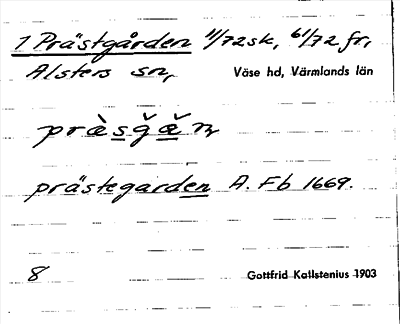 1 Prästgården 11/72 sk, 61/72 fr,
Alsters sn, Väse hd, Värmlands län
prästegarden A. Fb 1669.
8 Gottfrid Kallstenius 1903